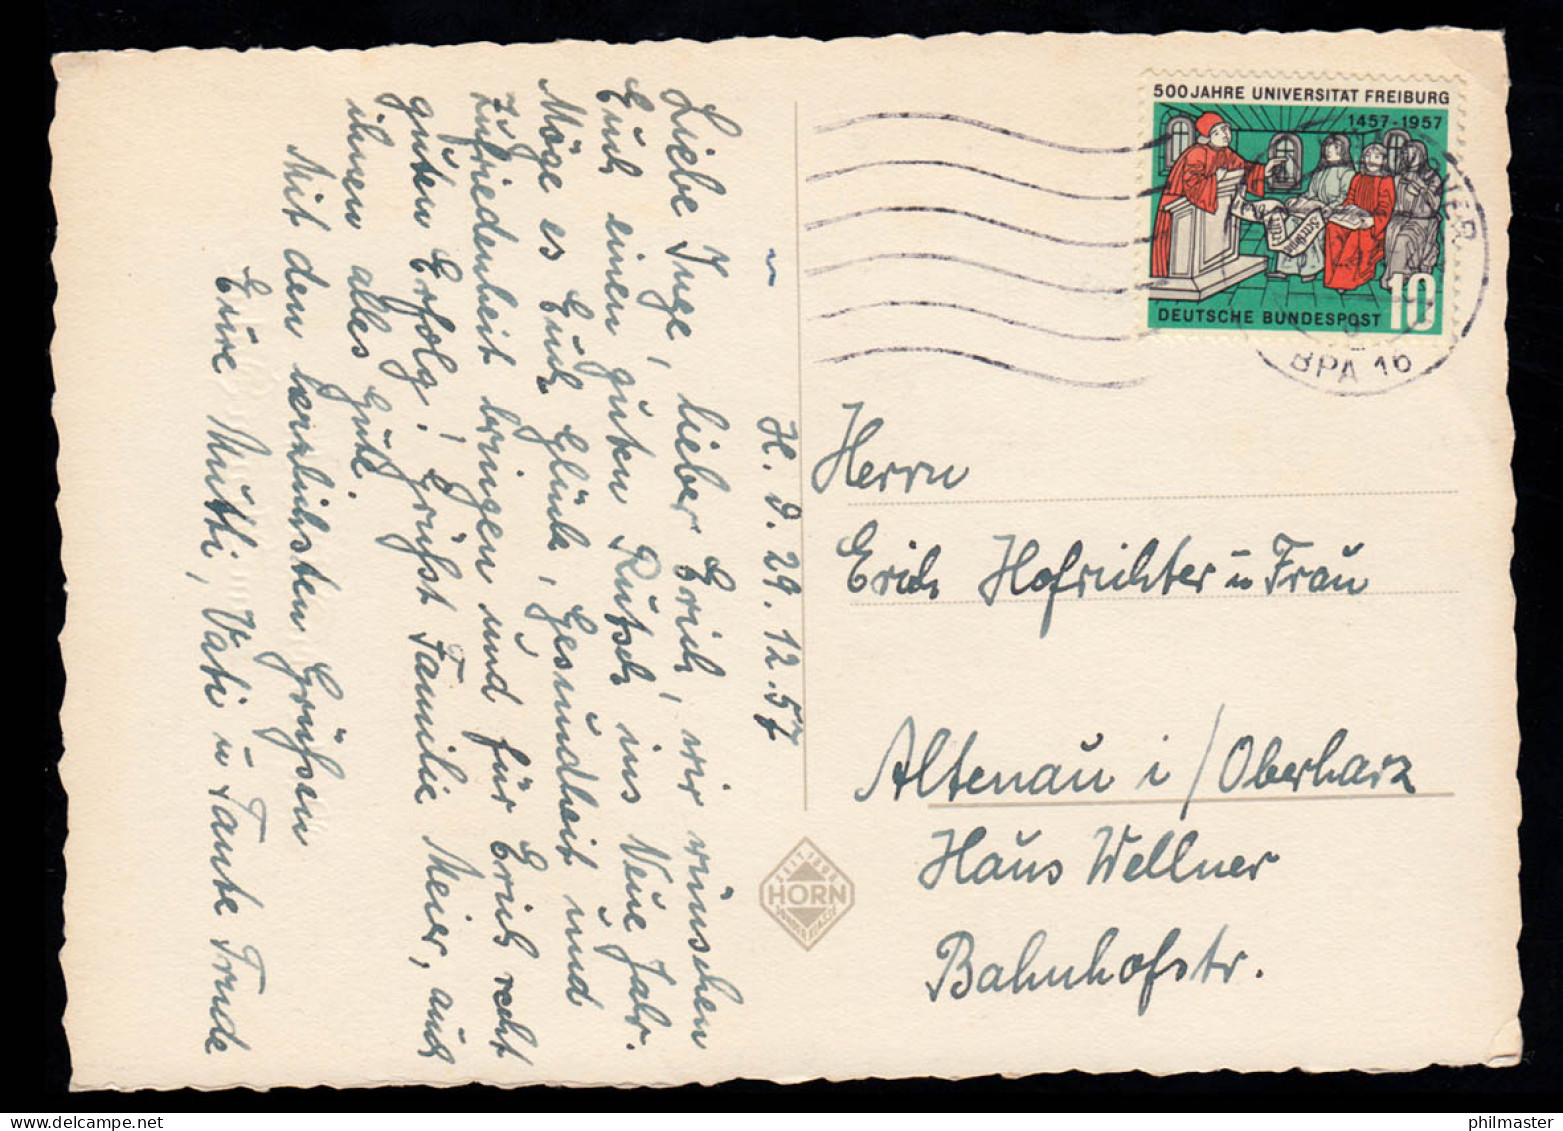 H. d. 29. 12. 57
Liebe Inge, lieber Erich, wir wünschen
Euch einen guten Rutsch ins Neue Jahr.
Möge es Euch Glück, Gesundheit und
Zufriedenheit bringen und für Erich recht
guten Erfolg! Grüßt Familie Meier, auch
ihnen alles Gute.
Mit den herzlichsten Grüßen
Eure Mutti, Vati u Tante Trude
500 JAHRE UNIVERSITÄT FREIBURG
1457-1957
10
DEUTSCHE BUNDESPOST
BPA 16
Herrn
Erich Hofrichter u Frau
Altenau i/Oberharz
Haus Wellner
Bahnhofstr.
HORN
philmaster